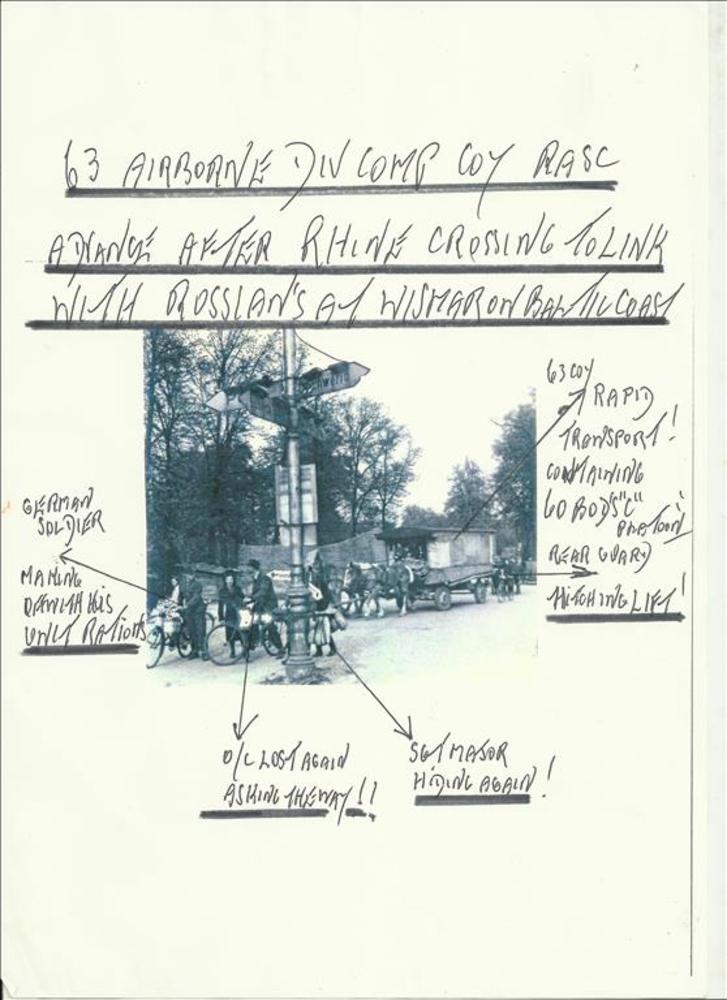 63 AIRBORNE DIV COMP COY RASC
ADVANCE AFTER RHINE CROSSING TO LINK
WITH RUSSIAN'S AT WISMAR ON BALTIC COAST
63 COY
RAPID
TRANSPORT!
CONTAINING
60 BODS "C"
PLATOON!
REAR GUARD
HITCHING LIFT!
GERMAN
SOLDIER
MAKING
OFF WITH HIS
UNIT RATIONS
O/C LOST AGAIN
ASKING THE WAY!!
SGT MAJOR
HIDING AGAIN!